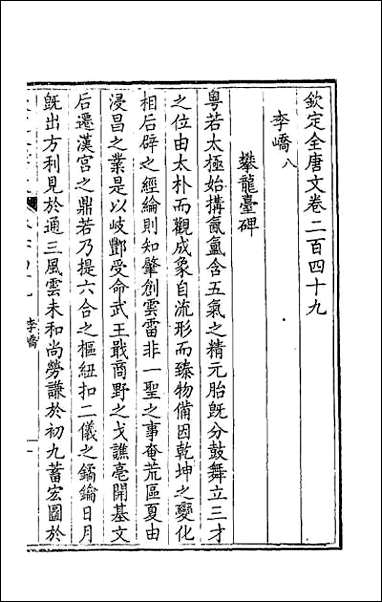 欽定全唐文卷二百四十九
李嶠八
攀龍臺碑
粤若太極始搆氤氳含五氣之精元胎既分鼓舞立三才
之位由太朴而觀成象自流形而臻物備因乾坤之變化
相后辟之經綸則知肇創雲雷非一聖之事奄荒區夏由
浸昌之業是以岐酆受命武王戢商野之戈譙亳開基文
后遷漢宫之鼎若乃提六合之樞紐扣二儀之鐍鑰日月
既出方利見於通三風雲未和尚勞謙於初九蓄宏圖於
李嶠
一